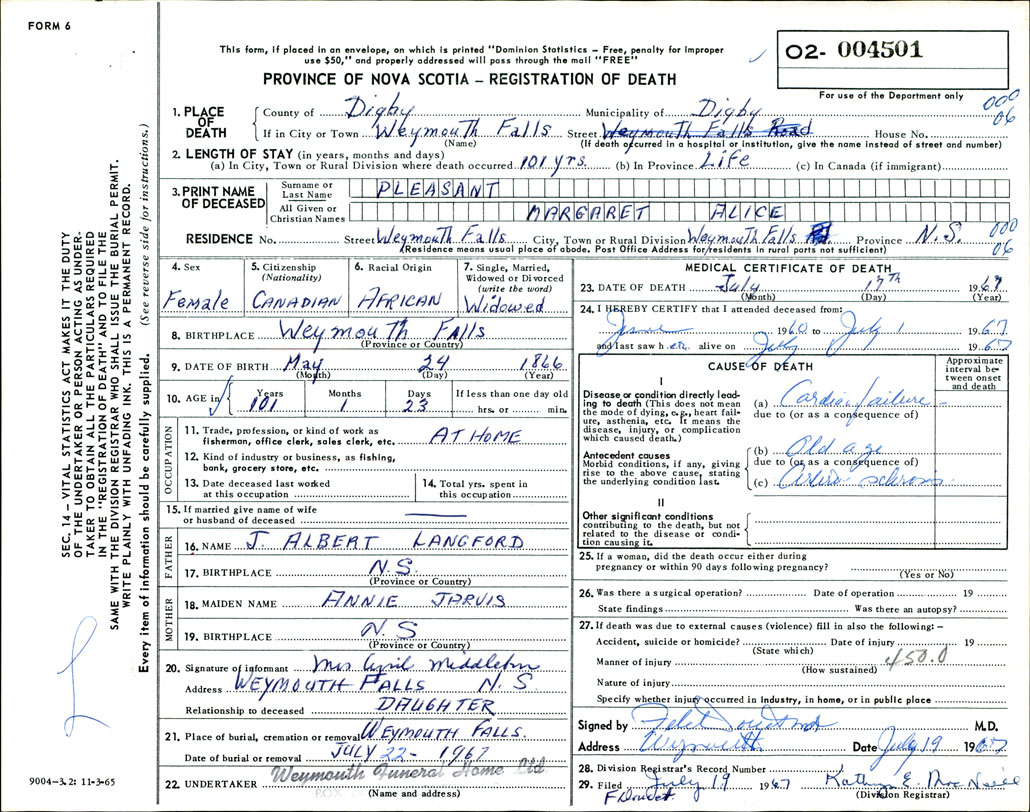 FORM 6
This form, if placed in an envelope, on which is printed "Dominion Statistics – Free, penalty for improper
use $50," and properly addressed will pass through the mail "FREE"
PROVINCE OF NOVA SCOTIA – REGISTRATION OF DEATH
02- 004501
For use of the Department only
000
06
SEC. 14 – VITAL STATISTICS ACT MAKES IT THE DUTY
OF THE UNDERTAKER OR PERSON ACTING AS UNDER-
TAKER TO OBTAIN ALL THE PARTICULARS REQUIRED
IN THE "REGISTRATION OF DEATH" AND TO FILE THE
SAME WITH THE DIVISION REGISTRAR WHO SHALL ISSUE THE BURIAL PERMIT.
WRITE PLAINLY WITH UNFADING INK. THIS IS A PERMANENT RECORD.
Every item of information should be carefully supplied. (See reverse side for instructions.)
1. PLACE OF DEATH
County of Digby Municipality of Digby
If in City or Town Weymouth Falls Street Weymouth Falls Road House No.
(Name) (If death occurred in a hospital or institution, give the name instead of street and number)
2. LENGTH OF STAY (in years, months and days)
(a) In City, Town or Rural Division where death occurred 101 yrs. (b) In Province Life (c) In Canada (if immigrant)
3. PRINT NAME OF DECEASED
Surname or Last Name PLEASANT
All Given or Christian Names MARGARET ALICE
RESIDENCE No. Street Weymouth Falls City, Town or Rural Division Weymouth Falls Province N.S. 000
(Residence means usual place of abode. Post Office Address for residents in rural parts not sufficient) 06
4. Sex Female
5. Citizenship (Nationality) CANADIAN
6. Racial Origin AFRICAN
7. Single, Married, Widowed or Divorced (write the word) Widowed
8. BIRTHPLACE Weymouth Falls
(Province or Country)
9. DATE OF BIRTH May 24 1866
(Month) (Day) (Year)
10. AGE in Years 101 Months 1 Days 23 If less than one day old hrs. or min.
OCCUPATION
11. Trade, profession, or kind of work as
fisherman, office clerk, sales clerk, etc. AT HOME
12. Kind of industry or business, as fishing,
bank, grocery store, etc.
13. Date deceased last worked
at this occupation
14. Total yrs. spent in
this occupation
15. If married give name of wife
or husband of deceased
FATHER
16. NAME J. ALBERT LANGFORD
17. BIRTHPLACE N.S.
(Province or Country)
MOTHER
18. MAIDEN NAME ANNIE JARVIS
19. BIRTHPLACE N.S
(Province or Country)
20. Signature of informant Mrs April Middleton
Address WEYMOUTH FALLS N.S.
Relationship to deceased DAUGHTER
21. Place of burial, cremation or removal WEYMOUTH FALLS.
Date of burial or removal JULY 22 - 1967
22. UNDERTAKER Weymouth Funeral Home Ltd
BOX
(Name and address)
9004-3.2: 11-3-65
MEDICAL CERTIFICATE OF DEATH
23. DATE OF DEATH July 17th 1967
(Month) (Day) (Year)
24. I HEREBY CERTIFY that I attended deceased from:
1960 to July 1 1967
and last saw h er alive on July 1 1967
CAUSE OF DEATH
Approximate interval between onset and death
I
Disease or condition directly lead-
ing to death (This does not mean
the mode of dying, e.g., heart fail-
ure, asthenia, etc. It means the
disease, injury, or complication
which caused death.)
(a) Cardiac failure
due to (or as a consequence of)
Antecedent causes
Morbid conditions, if any, giving
rise to the above cause, stating
the underlying condition last.
(b) Old age
due to (or as a consequence of)
(c) Arterio sclerosis
II
Other significant conditions
contributing to the death, but not
related to the disease or condi-
tion causing it.
25. If a woman, did the death occur either during
pregnancy or within 90 days following pregnancy?
(Yes or No)
26. Was there a surgical operation? Date of operation 19
State findings Was there an autopsy?
27. If death was due to external causes (violence) fill in also the following: –
Accident, suicide or homicide? Date of injury 19
(State which)
Manner of injury 450.0
(How sustained)
Nature of injury
Specify whether injury occurred in industry, in home, or in public place
Signed by M.D.
Address Weymouth Date July 19 1967
28. Division Registrar's Record Number
29. Filed July 19 1967 Kathryn E. MacNeill
F Doucet (Division Registrar)